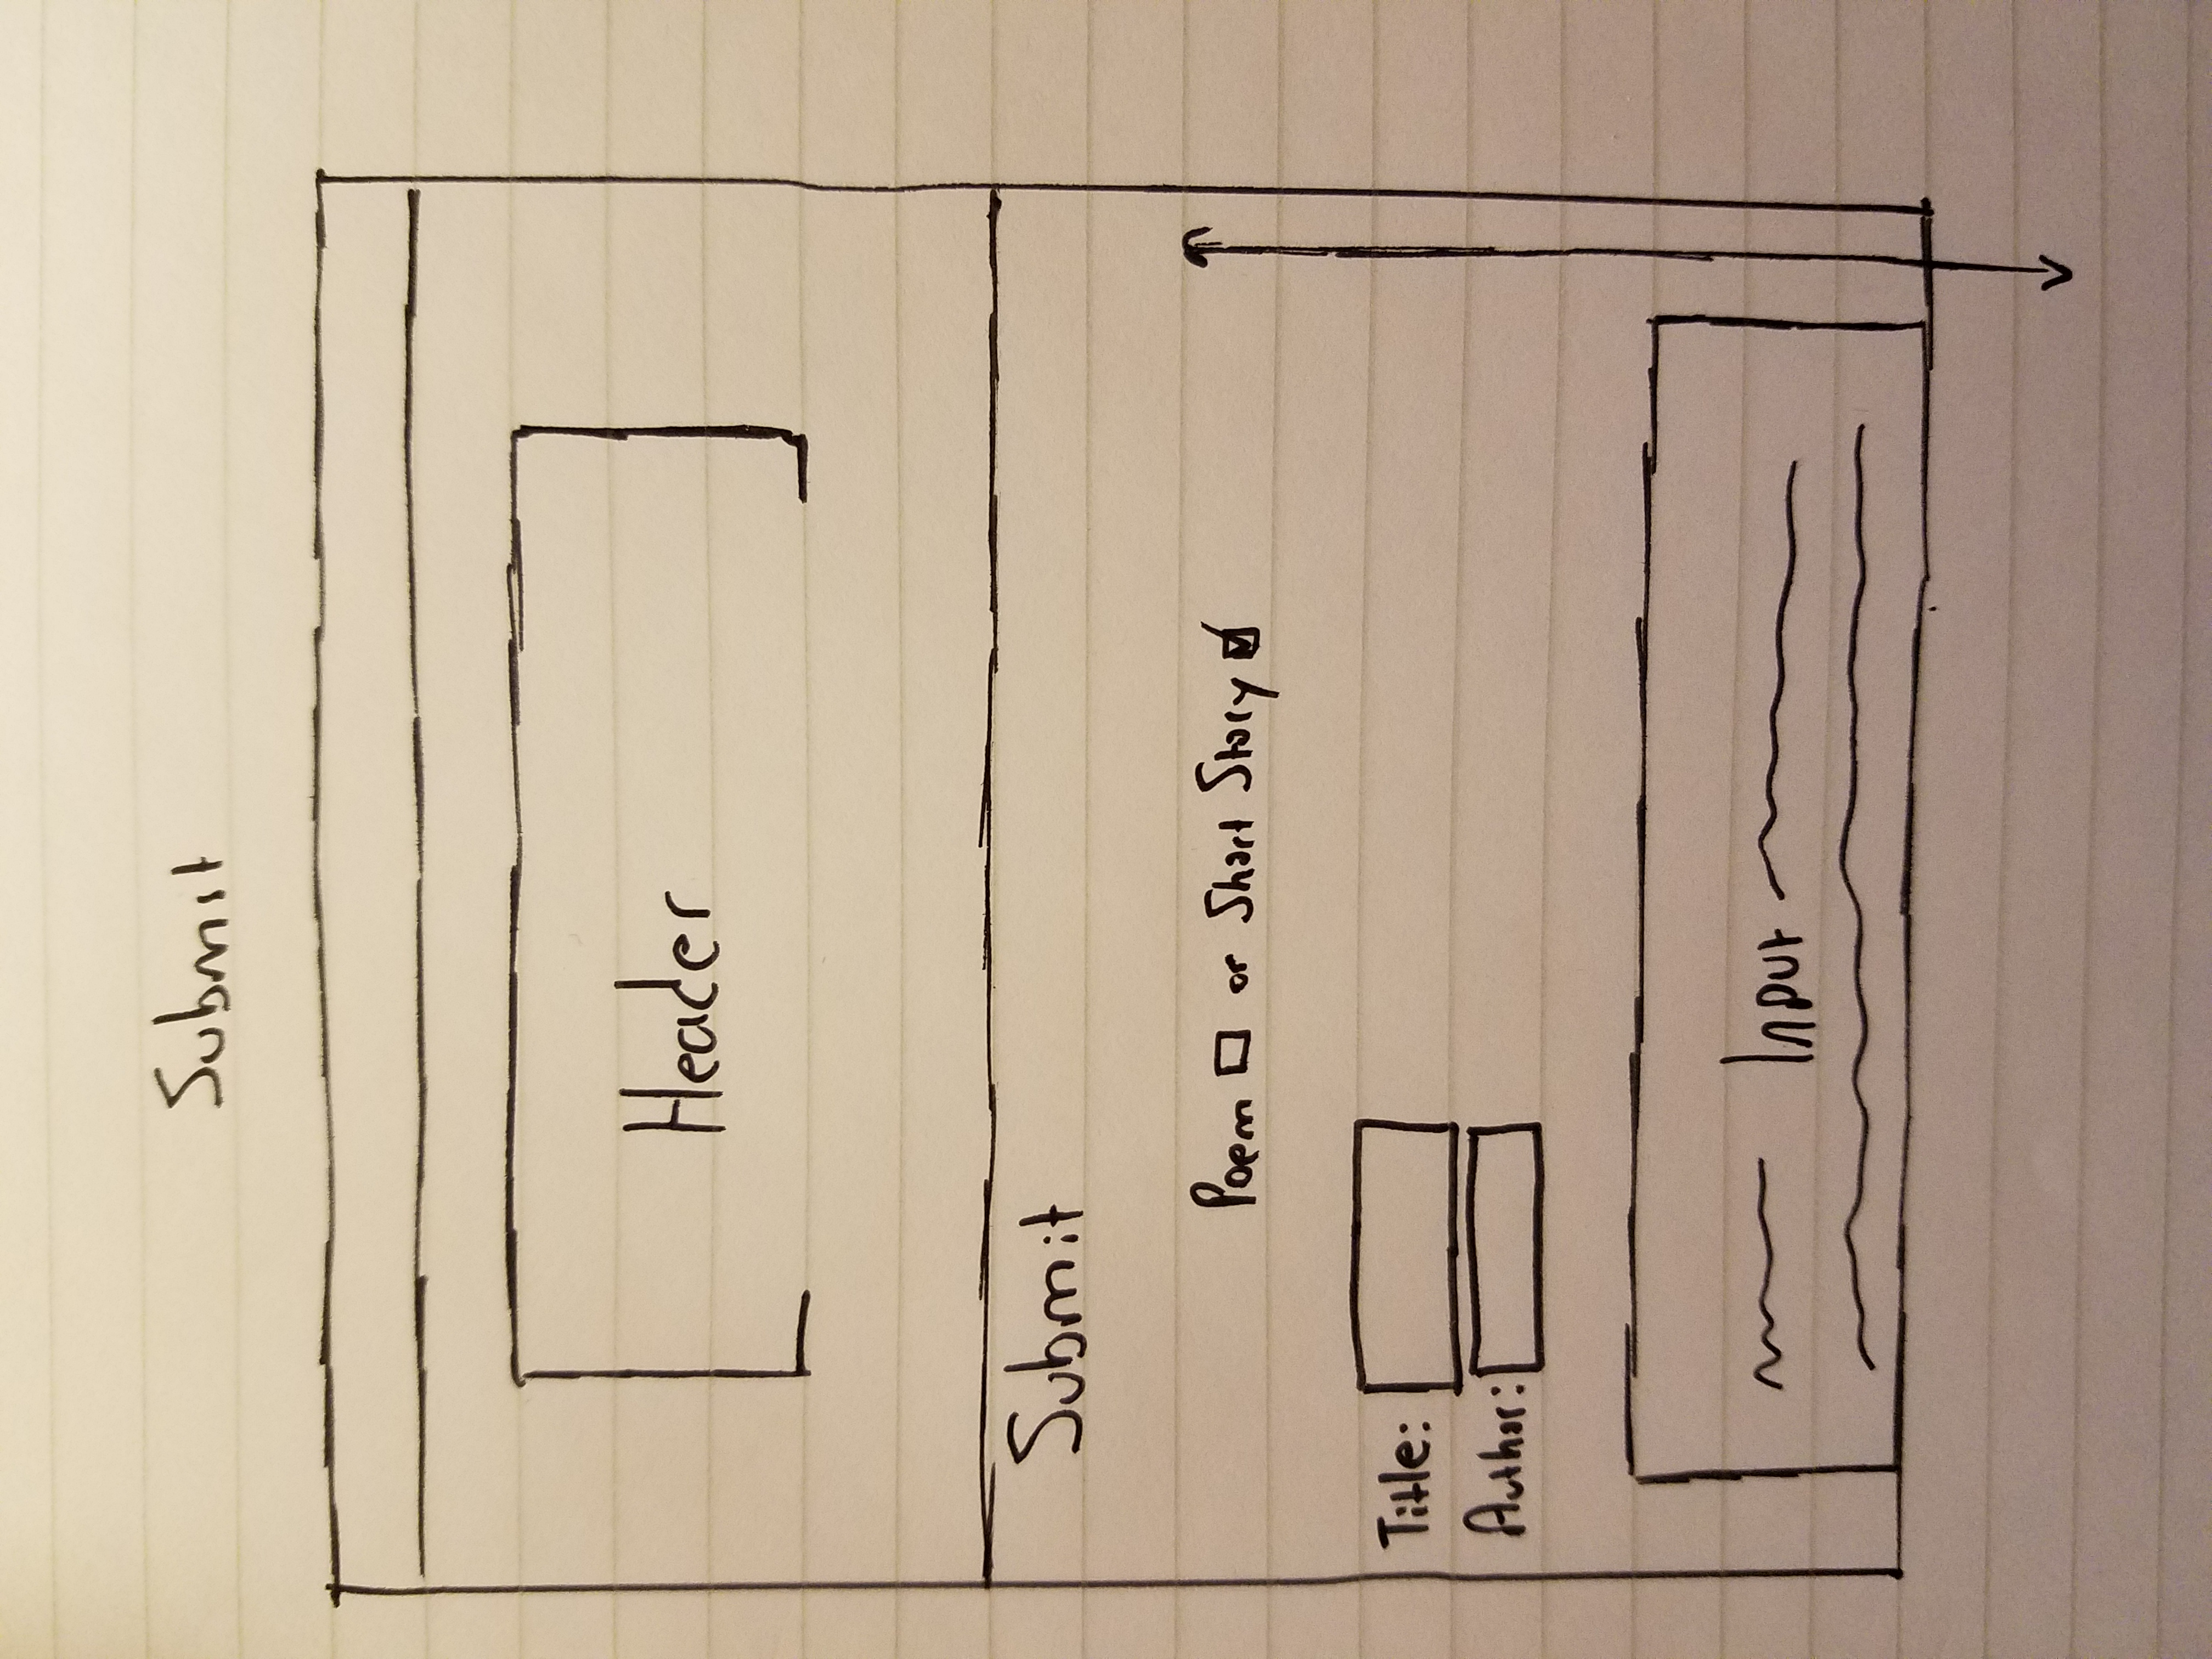 Submit
Header
Submit
Poem or Short Story
Title:
Author:
Input